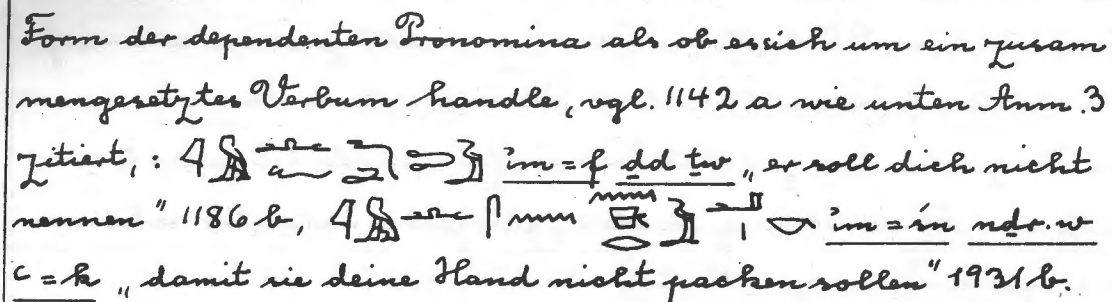 Form der dependenten Pronomina als ob es sich um ein zusam
mengesetztes Verbum handle, vgl. 1142 a wie unten Anm. 3
zitiert, : ı͗m = f ḏd ṯw „er soll dich nicht
nennen" 1186 b, ı͗m = śn nḏr.w
ꜥ = k „damit sie deine Hand nicht packen sollen" 1931 b.